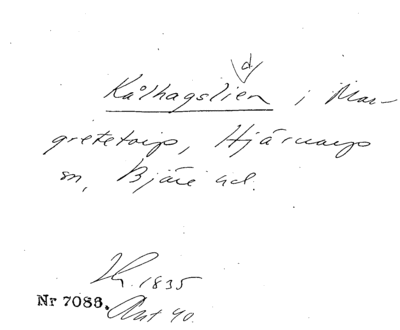 d
Kålhagslien i Mar-
gretetorp, Hjärnarps
sn, Bjäre hd.
1835
Nr 7083. Ant 40.